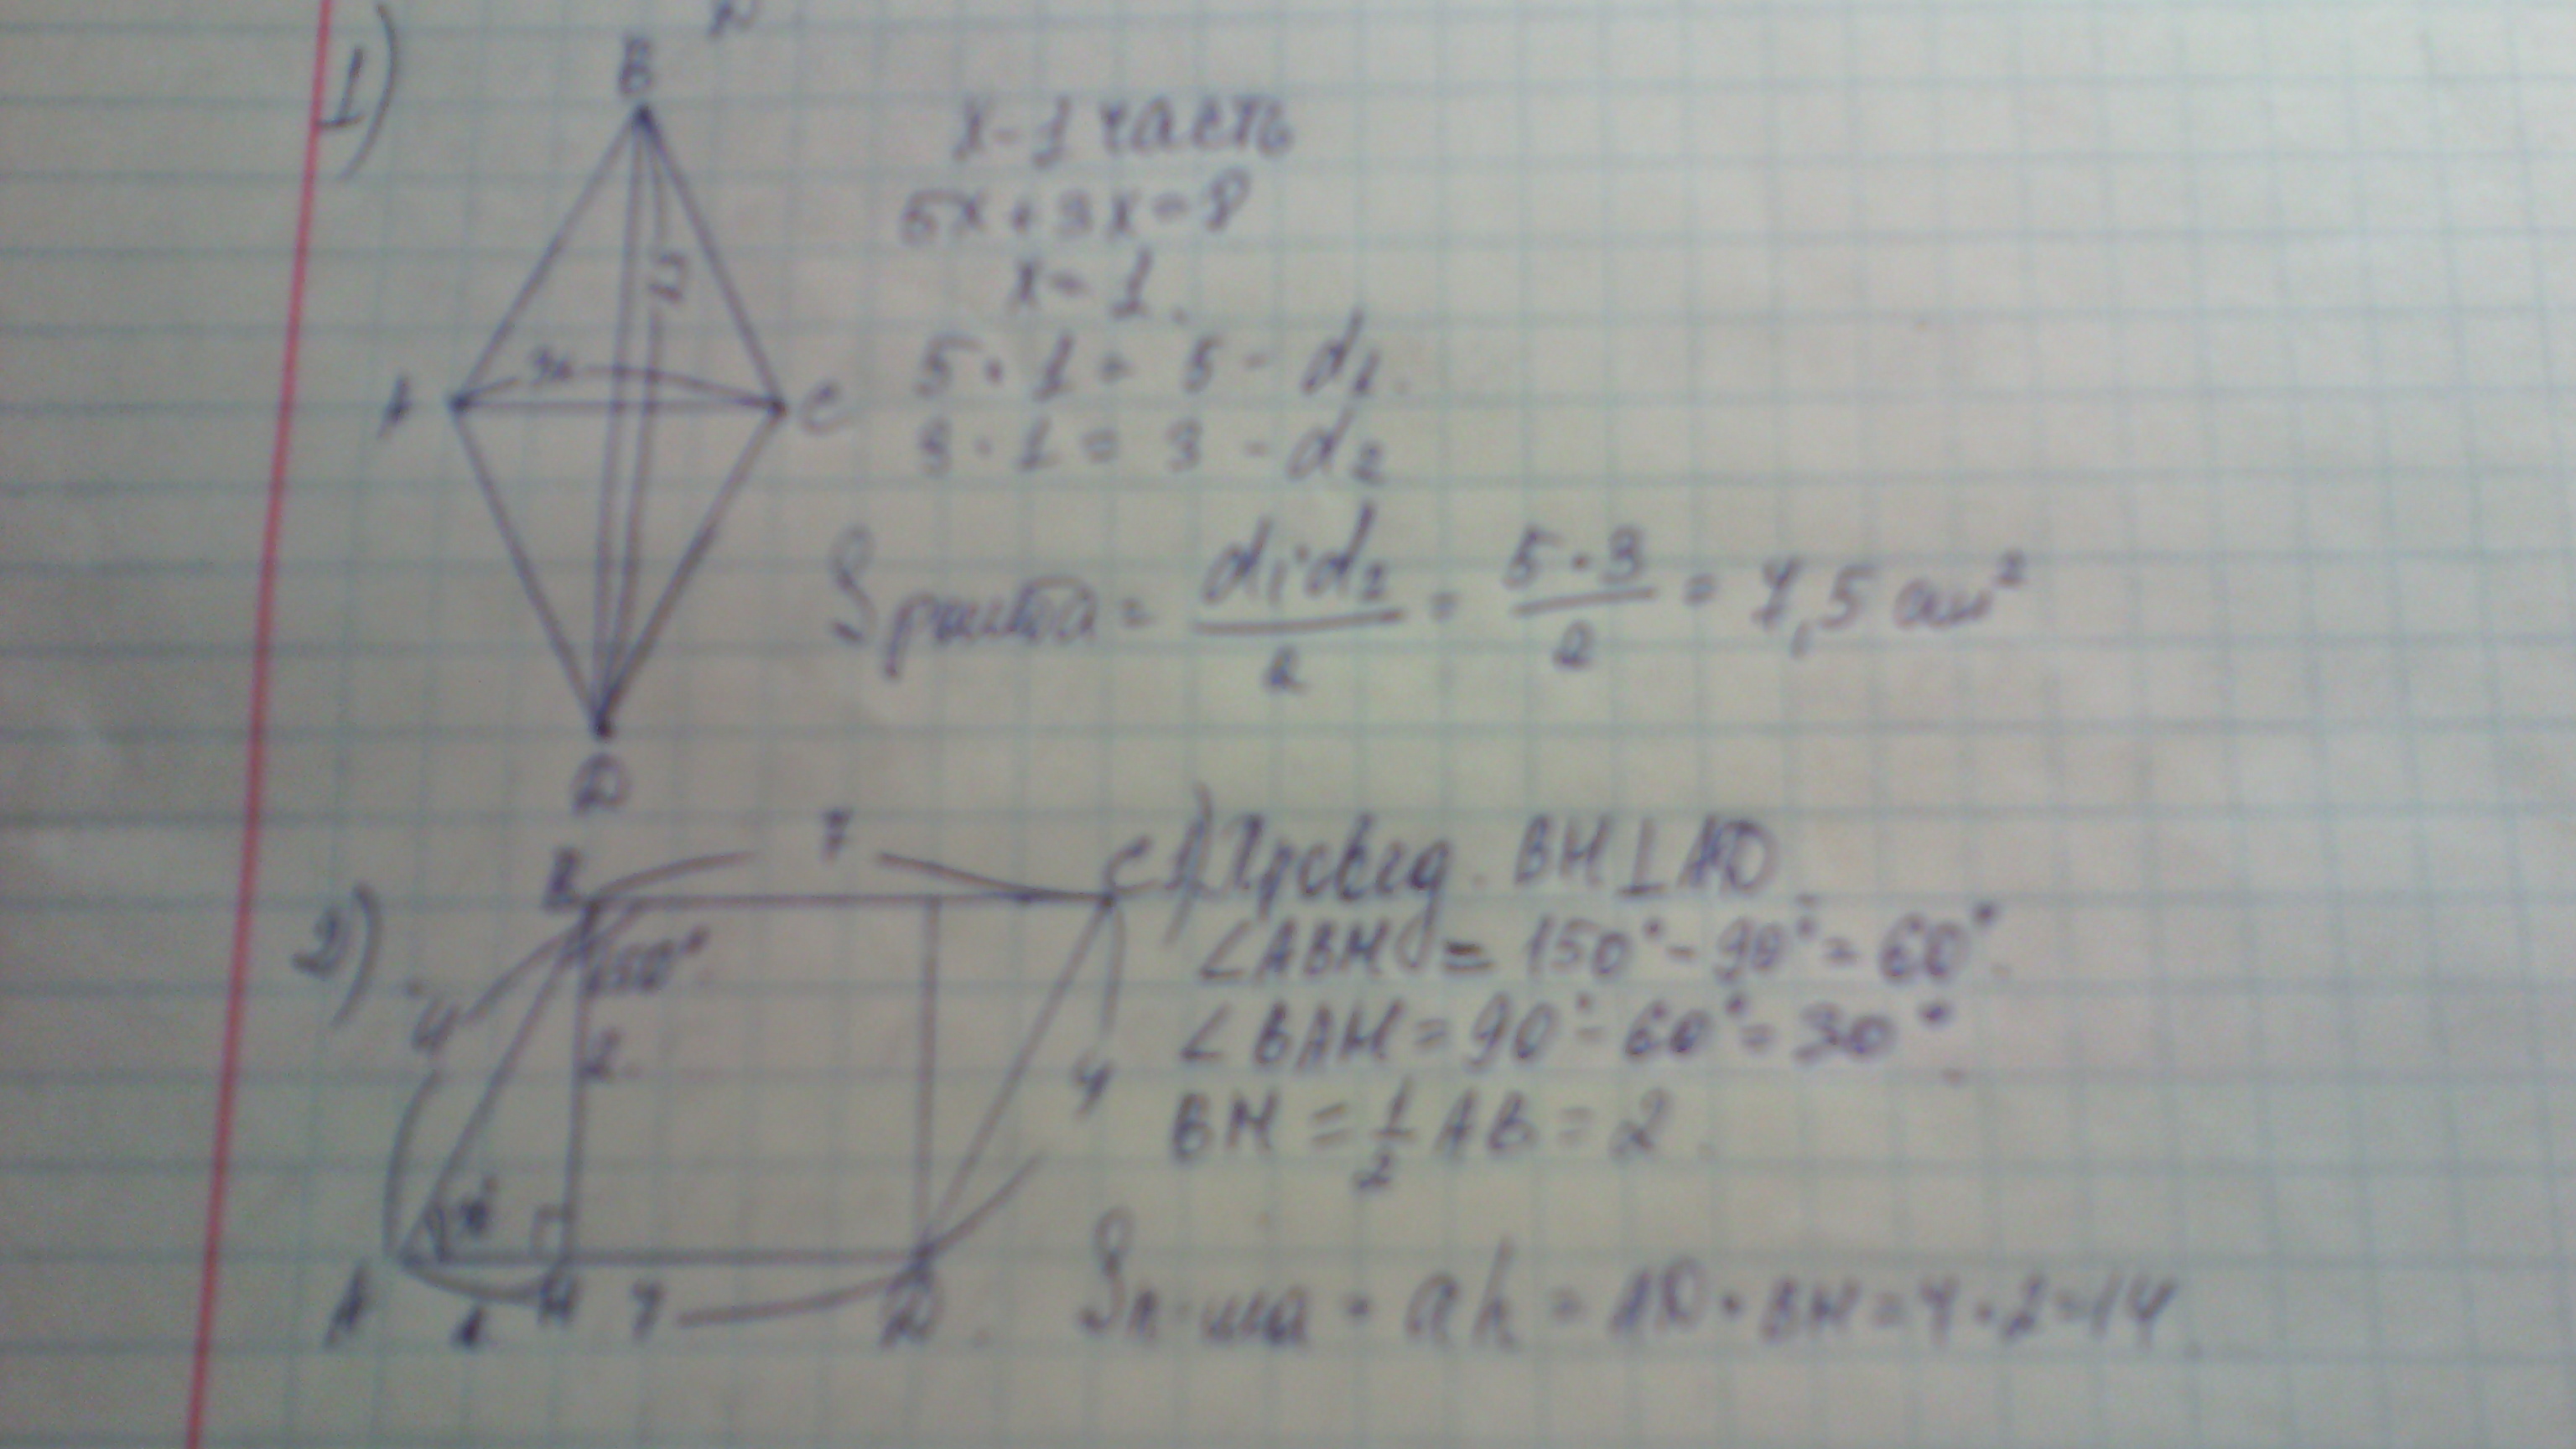 1)
B
x - 1 часть
5x + 3x = 8
x = 1.
3x
A
C
5 · 1 = 5 - d1.
3 · 1 = 3 - d2
S ромба = d1·d2/2 = 5·3/2 = 7,5 см²
D
2)
B
7
C
1) Провед. BH ⊥ AD
150°
∠ABH = 150° - 90° = 60°.
4
∠BAH = 90° - 60° = 30°
2
4
BH = 1/2 AB = 2.
A
H
7
D.
Sп-ма = ah = AD · BH = 7 · 2 = 14